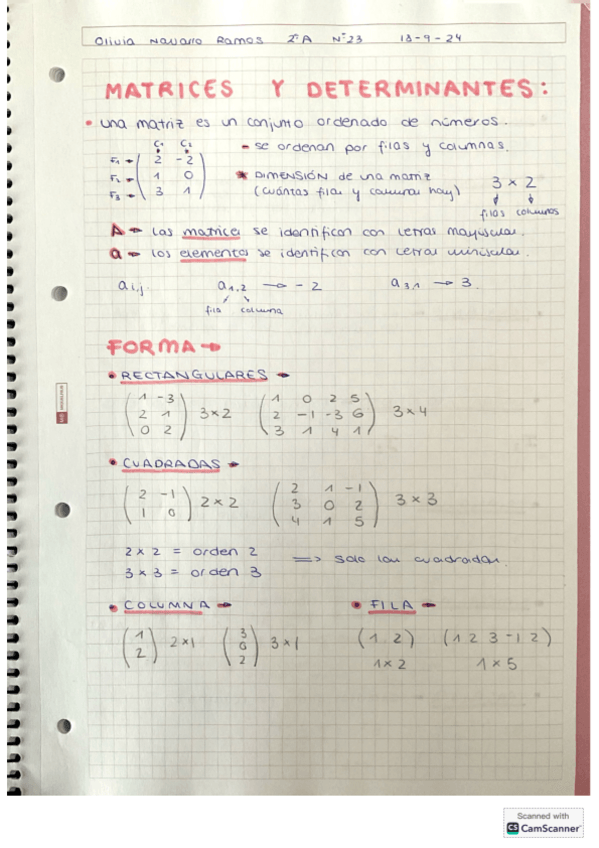 Olivia Navarro Ramos 2ºA Nº23 13-9-24
MATRICES Y DETERMINANTES:
• una matriz es un conjunto ordenado de números.
C₁ C₂
F₁ → 2 -2
F₂ → 1 0
F₃ → 3 1
- se ordenan por filas y columnas.
* DIMENSIÓN de una matriz 3 × 2
(cuántas filas y columnas hay)
filas columnas
A → Las matrices se identifican con letras mayúsculas.
a → los elementos se identifican con letras minúsculas.
a i,j a 1,2 → -2 a 3,1 → 3.
fila columna
FORMA →
• RECTANGULARES →
1 -3
2 1
0 2
3×2
1 0 2 5
2 -1 -3 6
3 1 4 1
3×4
• CUADRADAS →
2 -1
1 0
2×2
2 1 -1
3 0 2
4 1 5
3×3
2×2 = orden 2
3×3 = orden 3
=> solo las cuadradas.
• COLUMNA →
1
2
2×1
3
0
2
3×1
• FILA →
(1 2) (1 2 3 -1 2)
1×2 1×5
Scanned with
CS CamScanner